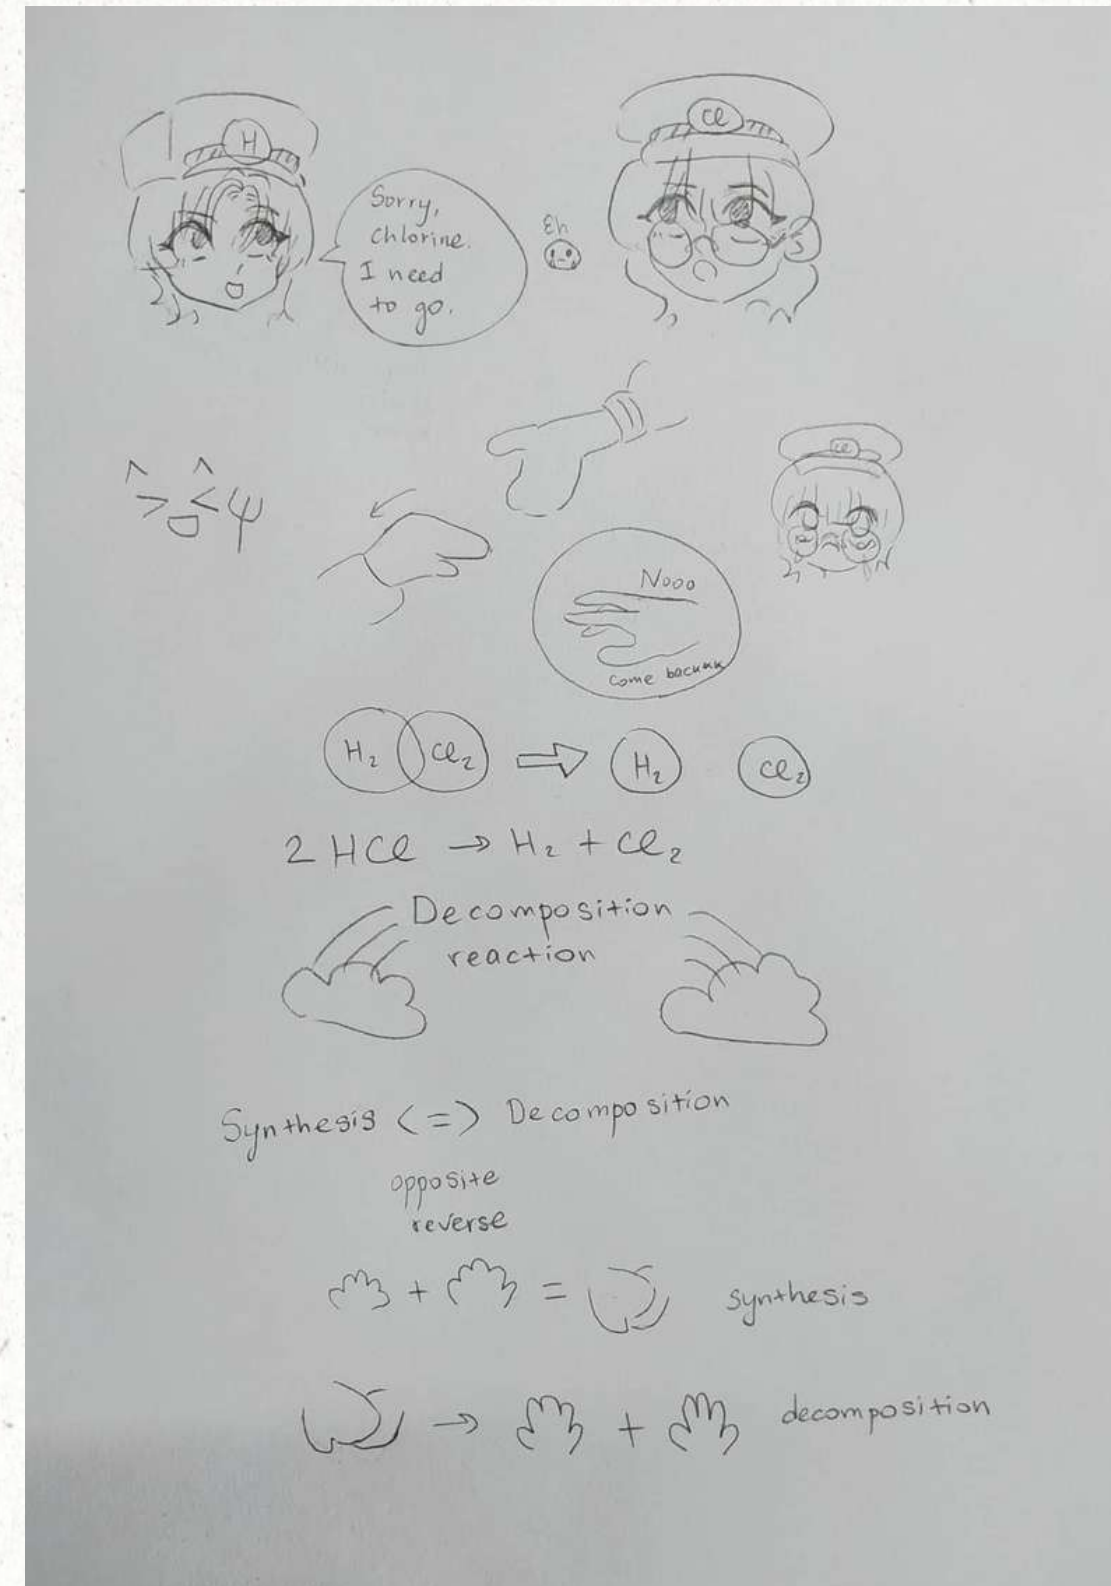 H
Cl
Sorry,
chlorine.
I need
to go.
Eh
Cl
Nooo
come backkkk
H₂ Cl₂ ⇒ H₂ Cl₂
2 HCl → H₂ + Cl₂
Decomposition
reaction
Synthesis <=> Decomposition
opposite
reverse
+ = synthesis
→ + decomposition